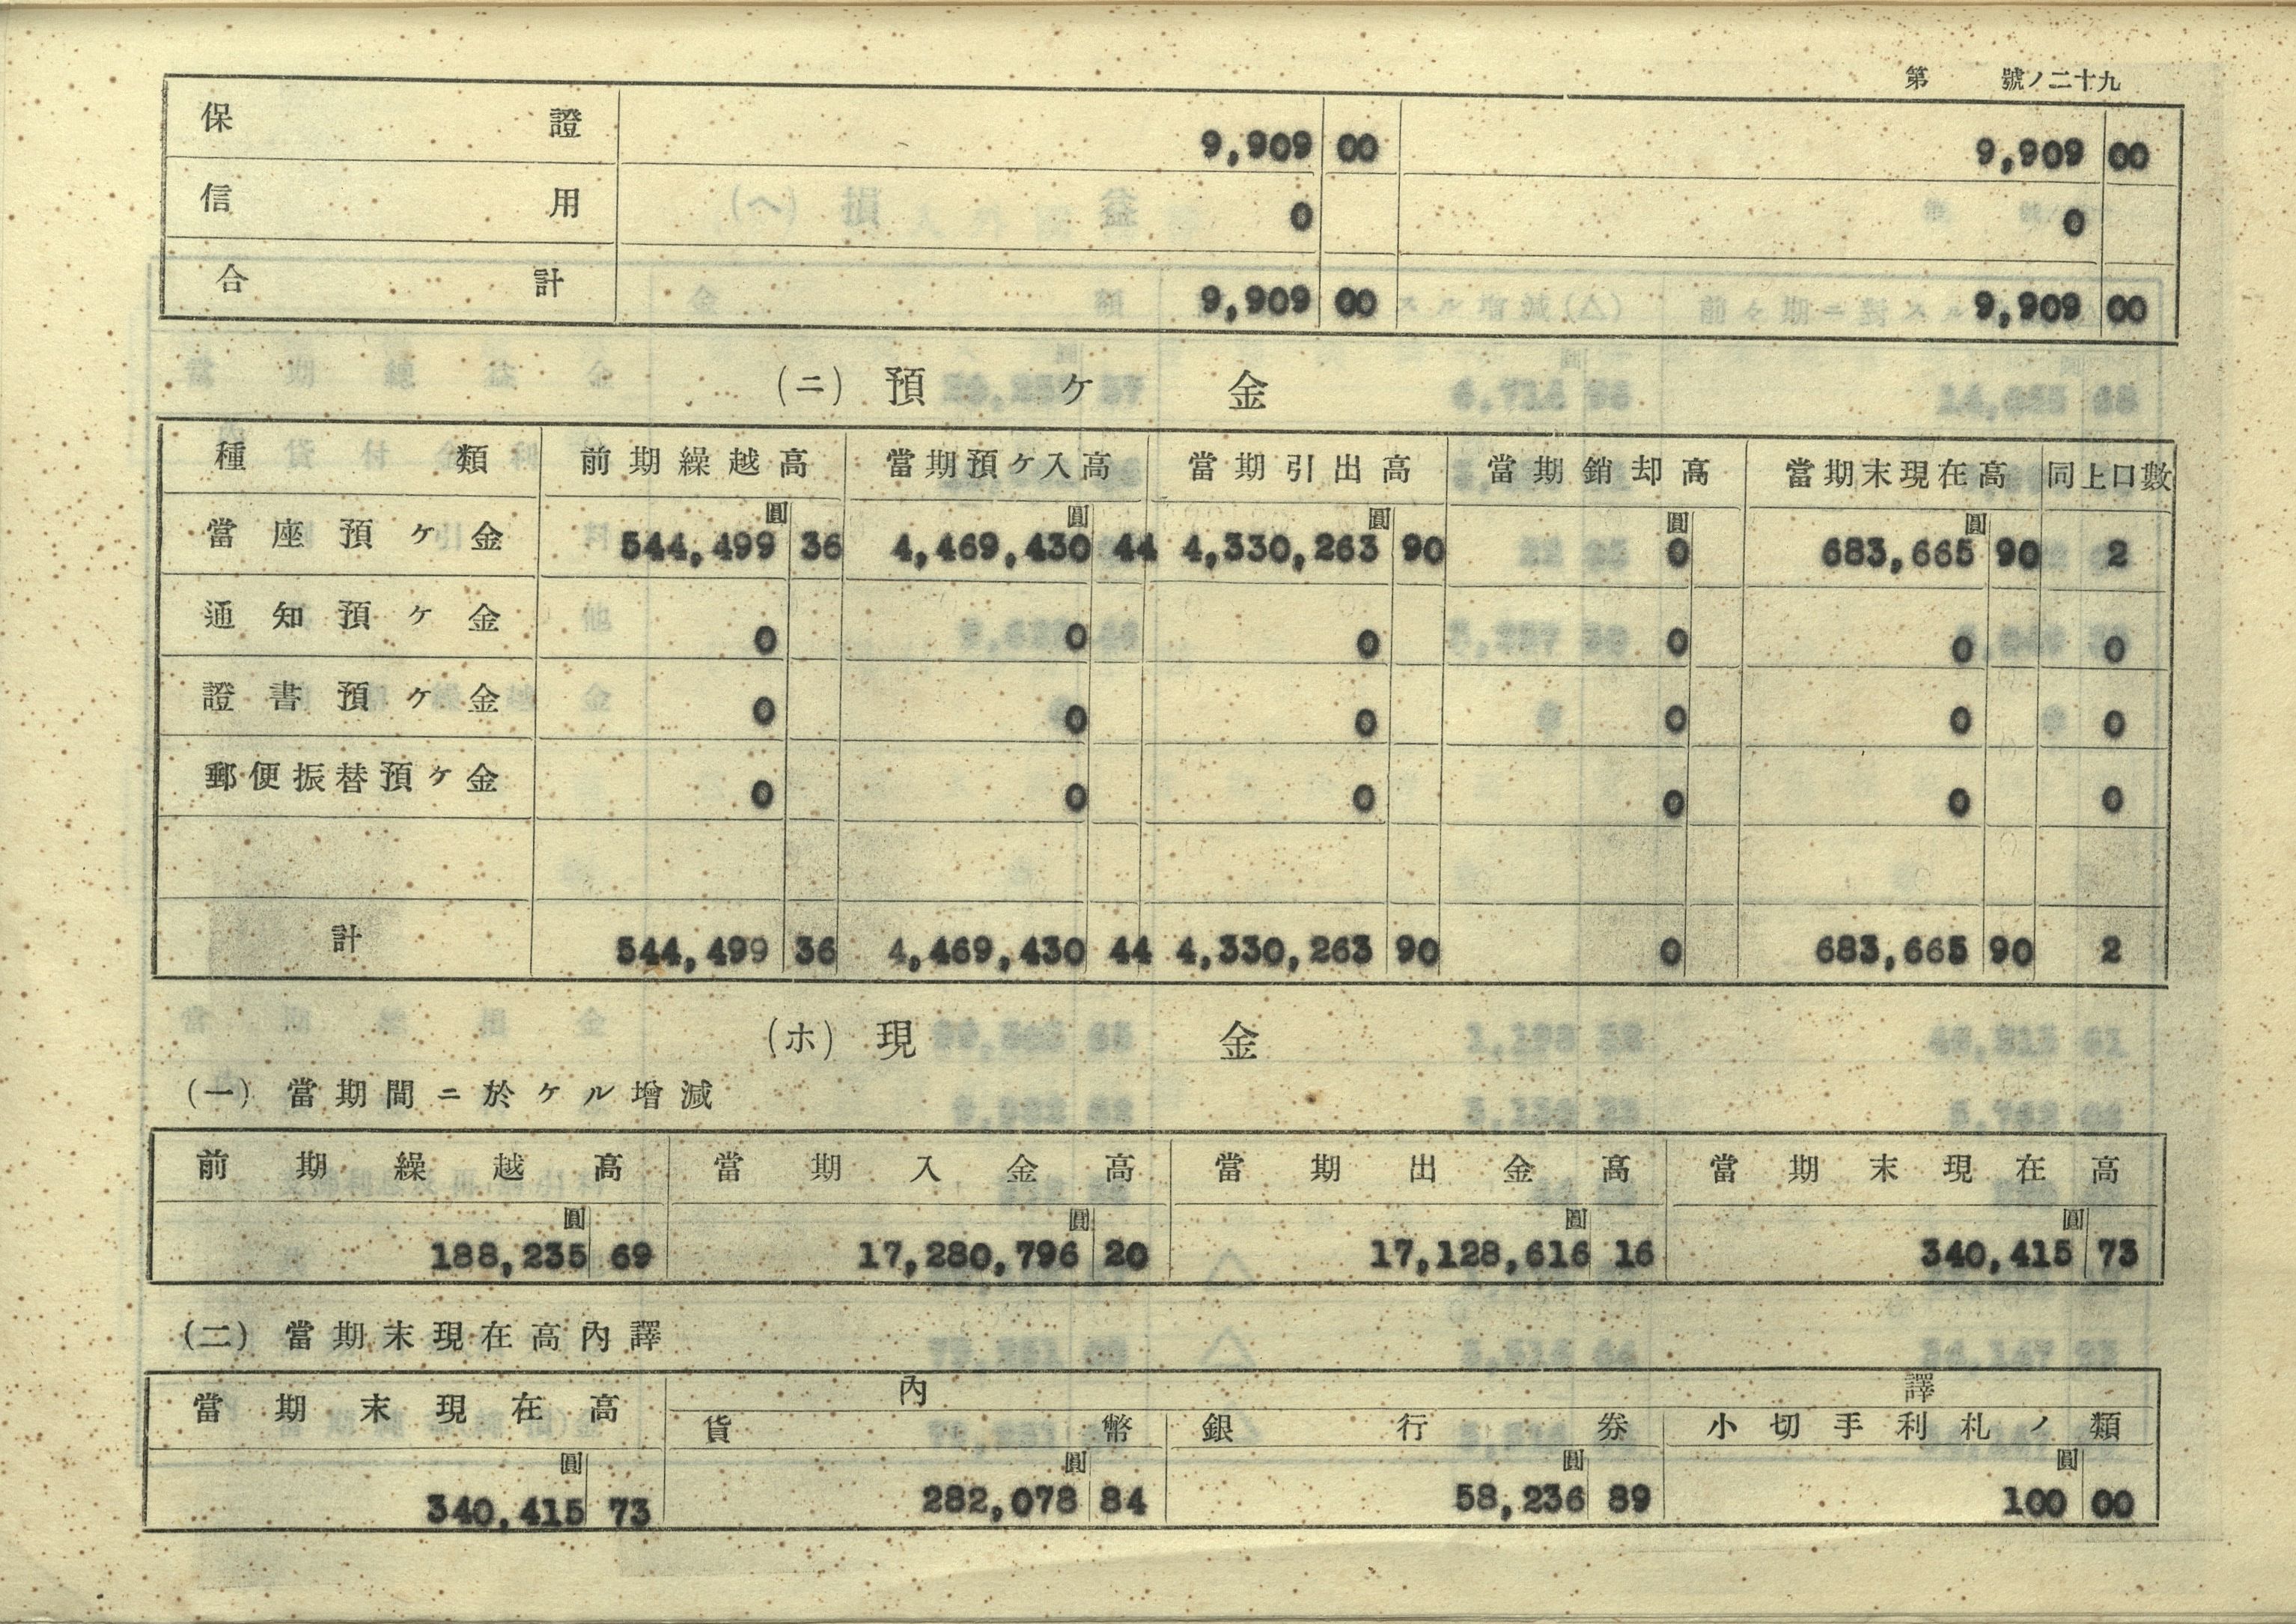 第 號ノ二十九
保證 9,909 00 9,909 00
信用 0 0
合計 9,909 00 9,909 00
(ニ) 預ケ金
種類 前期繰越高 當期預ケ入高 當期引出高 當期銷却高 當期末現在高 同上口數
圓 圓 圓 圓 圓
當座預ケ金 544,499 36 4,469,430 44 4,330,263 90 0 683,665 90 2
通知預ケ金 0 0 0 0 0 0
證書預ケ金 0 0 0 0 0 0
郵便振替預ケ金 0 0 0 0 0 0
計 544,499 36 4,469,430 44 4,330,263 90 0 683,665 90 2
(ホ) 現金
(一) 當期間ニ於ケル增減
前期繰越高 當期入金高 當期出金高 當期末現在高
圓 圓 圓 圓
188,235 69 17,280,796 20 17,128,616 16 340,415 73
(二) 當期末現在高內譯
當期末現在高 內譯
貨幣 銀行券 小切手利札ノ類
圓 圓 圓 圓
340,415 73 282,078 84 58,236 89 100 00